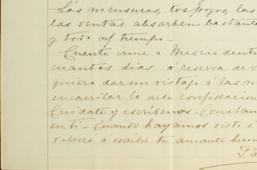 Las mensuras, los pozos, las
las ventas absorben bastante
y todo el tiempo.
Cuento irme a Mexico dentro
cuantos dias á reserva de
quiero dar un vistazo á las m
encarrilar lo de la confiscacion
Cuidate y escribenos. Constan
en ti. Cuando hayamos visto
volveré a escribir tu amante herm